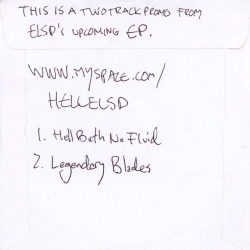 THIS IS A TWO TRACK PROMO FROM
ELSD'S UPCOMING EP.
WWW.MYSPACE.COM/
HELLELSD
1. Hell Bath No Fluid
2. Legendary Blades